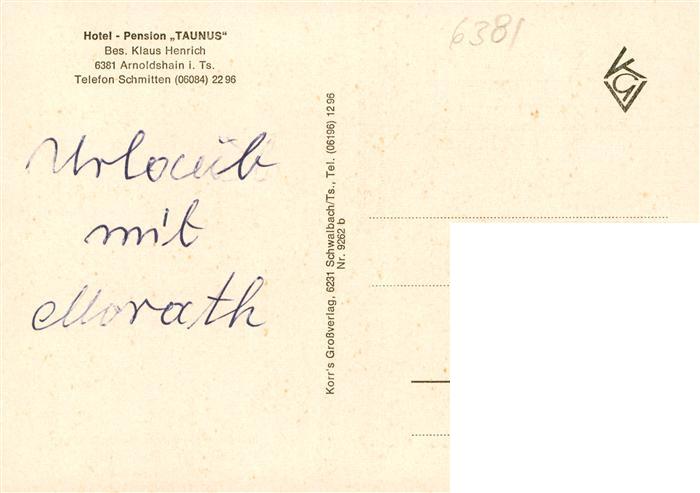 Hotel - Pension „TAUNUS"
Bes. Klaus Henrich
6381 Arnoldshain i. Ts.
Telefon Schmitten (06084) 22 96
6381
Urlaub
mit
Morath
Korr's Großverlag, 6231 Schwalbach/Ts., Tel. (06196) 12 96
Nr. 9262 b